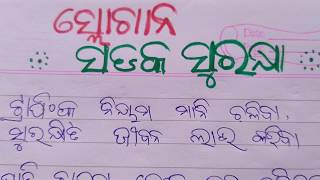 ସ୍ଲୋଗାନ
ସଡକ ସୁରକ୍ଷା
ଟ୍ରାଫିକ ନିୟମ ମାନି ଚଳିବା,
ସୁରକ୍ଷିତ ଜୀବନ ଲାଭ କରିବା